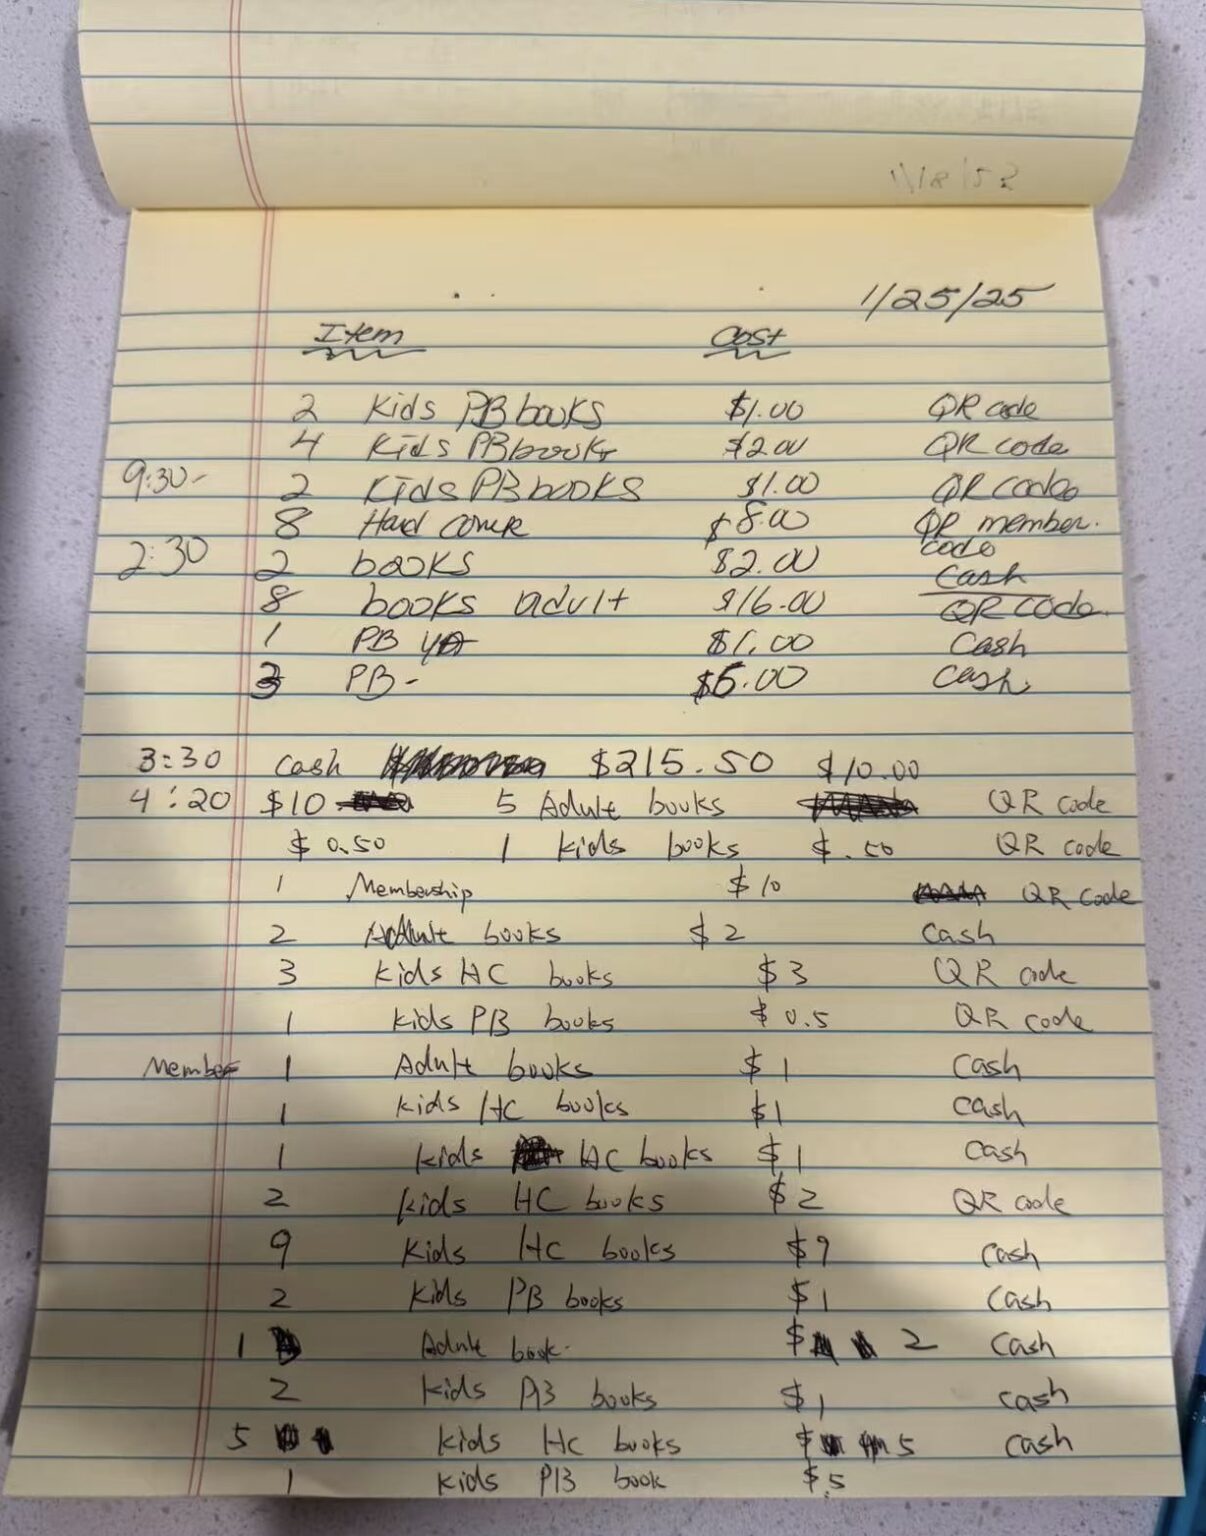 1/25/25
Item Cost
2 Kids PB books $1.00 QR code
4 Kids PB books $2.00 QR code
9:30- 2 Kids PB books $1.00 QR code
8 Hard cover $8.00 QR member. code
2:30 2 books $2.00 cash
8 books adult $16.00 QR code.
1 PB YA $1.00 Cash
3 PB- $5.00 Cash.
3:30 cash $215.50 $10.00
4:20 $10 5 Adult books QR code
$0.50 1 kids books $.50 QR code
1 Membership $10 QR code
2 Adult books $2 cash
3 kids HC books $3 QR code
1 kids PB books $0.5 QR code
Member 1 Adult books $1 cash
1 kids HC books $1 cash
1 kids HC books $1 cash
2 kids HC books $2 QR code
9 kids HC books $9 cash
2 kids PB books $1 cash
1 Adult book. $ 2 cash
2 kids PB books $1 cash
5 kids HC books $ 5 cash
1 kids PB book $.5